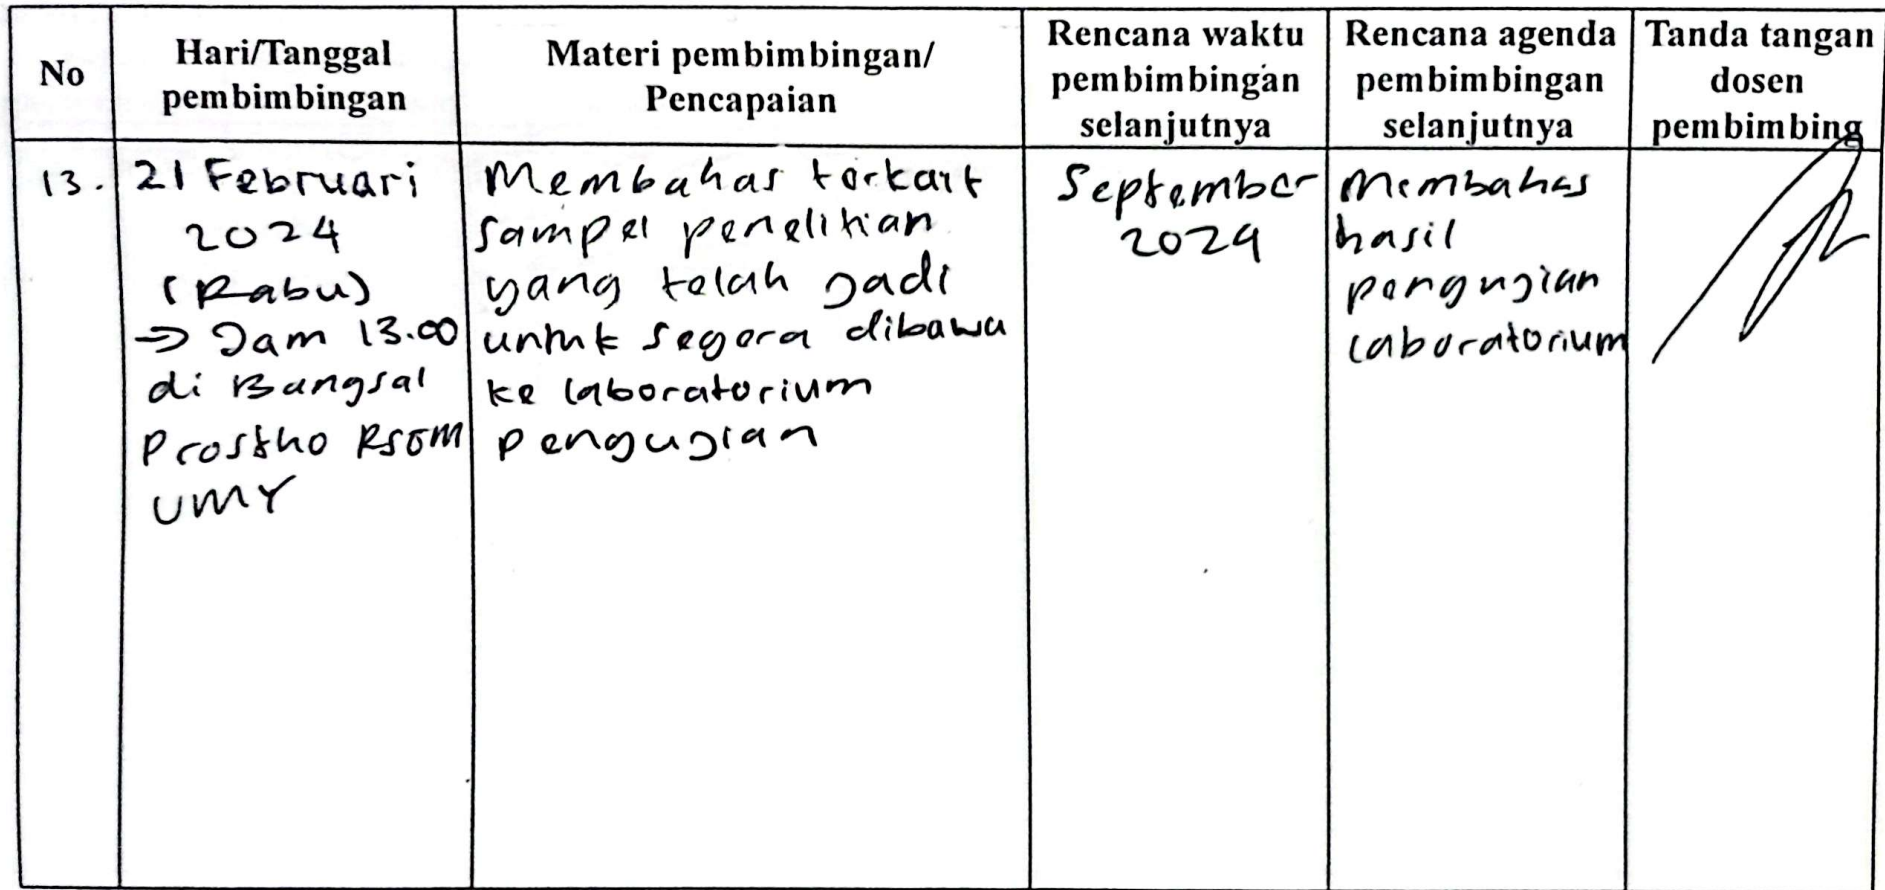 No
Hari/Tanggal
pembimbingan
Materi pembimbingan/
Pencapaian
Rencana waktu
pembimbingan
selanjutnya
Rencana agenda
pembimbingan
selanjutnya
Tanda tangan
dosen
pembimbing
13.
21 Februari
2024
(Rabu)
→ Jam 13.00
di Bangsal
Prostho RSGM
UMY
Membahas terkait
sampel penelitian
yang telah jadi
untuk segera dibawa
ke laboratorium
pengujian
September
2024
Membahas
hasil
pengujian
laboratorium